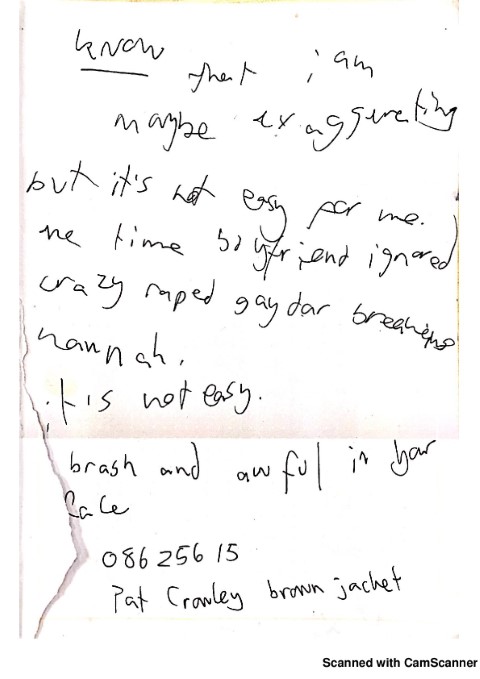 know that i am
maybe exaggerating
but it's not easy for me.
me time boyfriend ignored
crazy raped gaydar
hannah.
it is not easy.
brash and awful in your
face
086 256 15
Pat Crowley brown jacket
Scanned with CamScanner